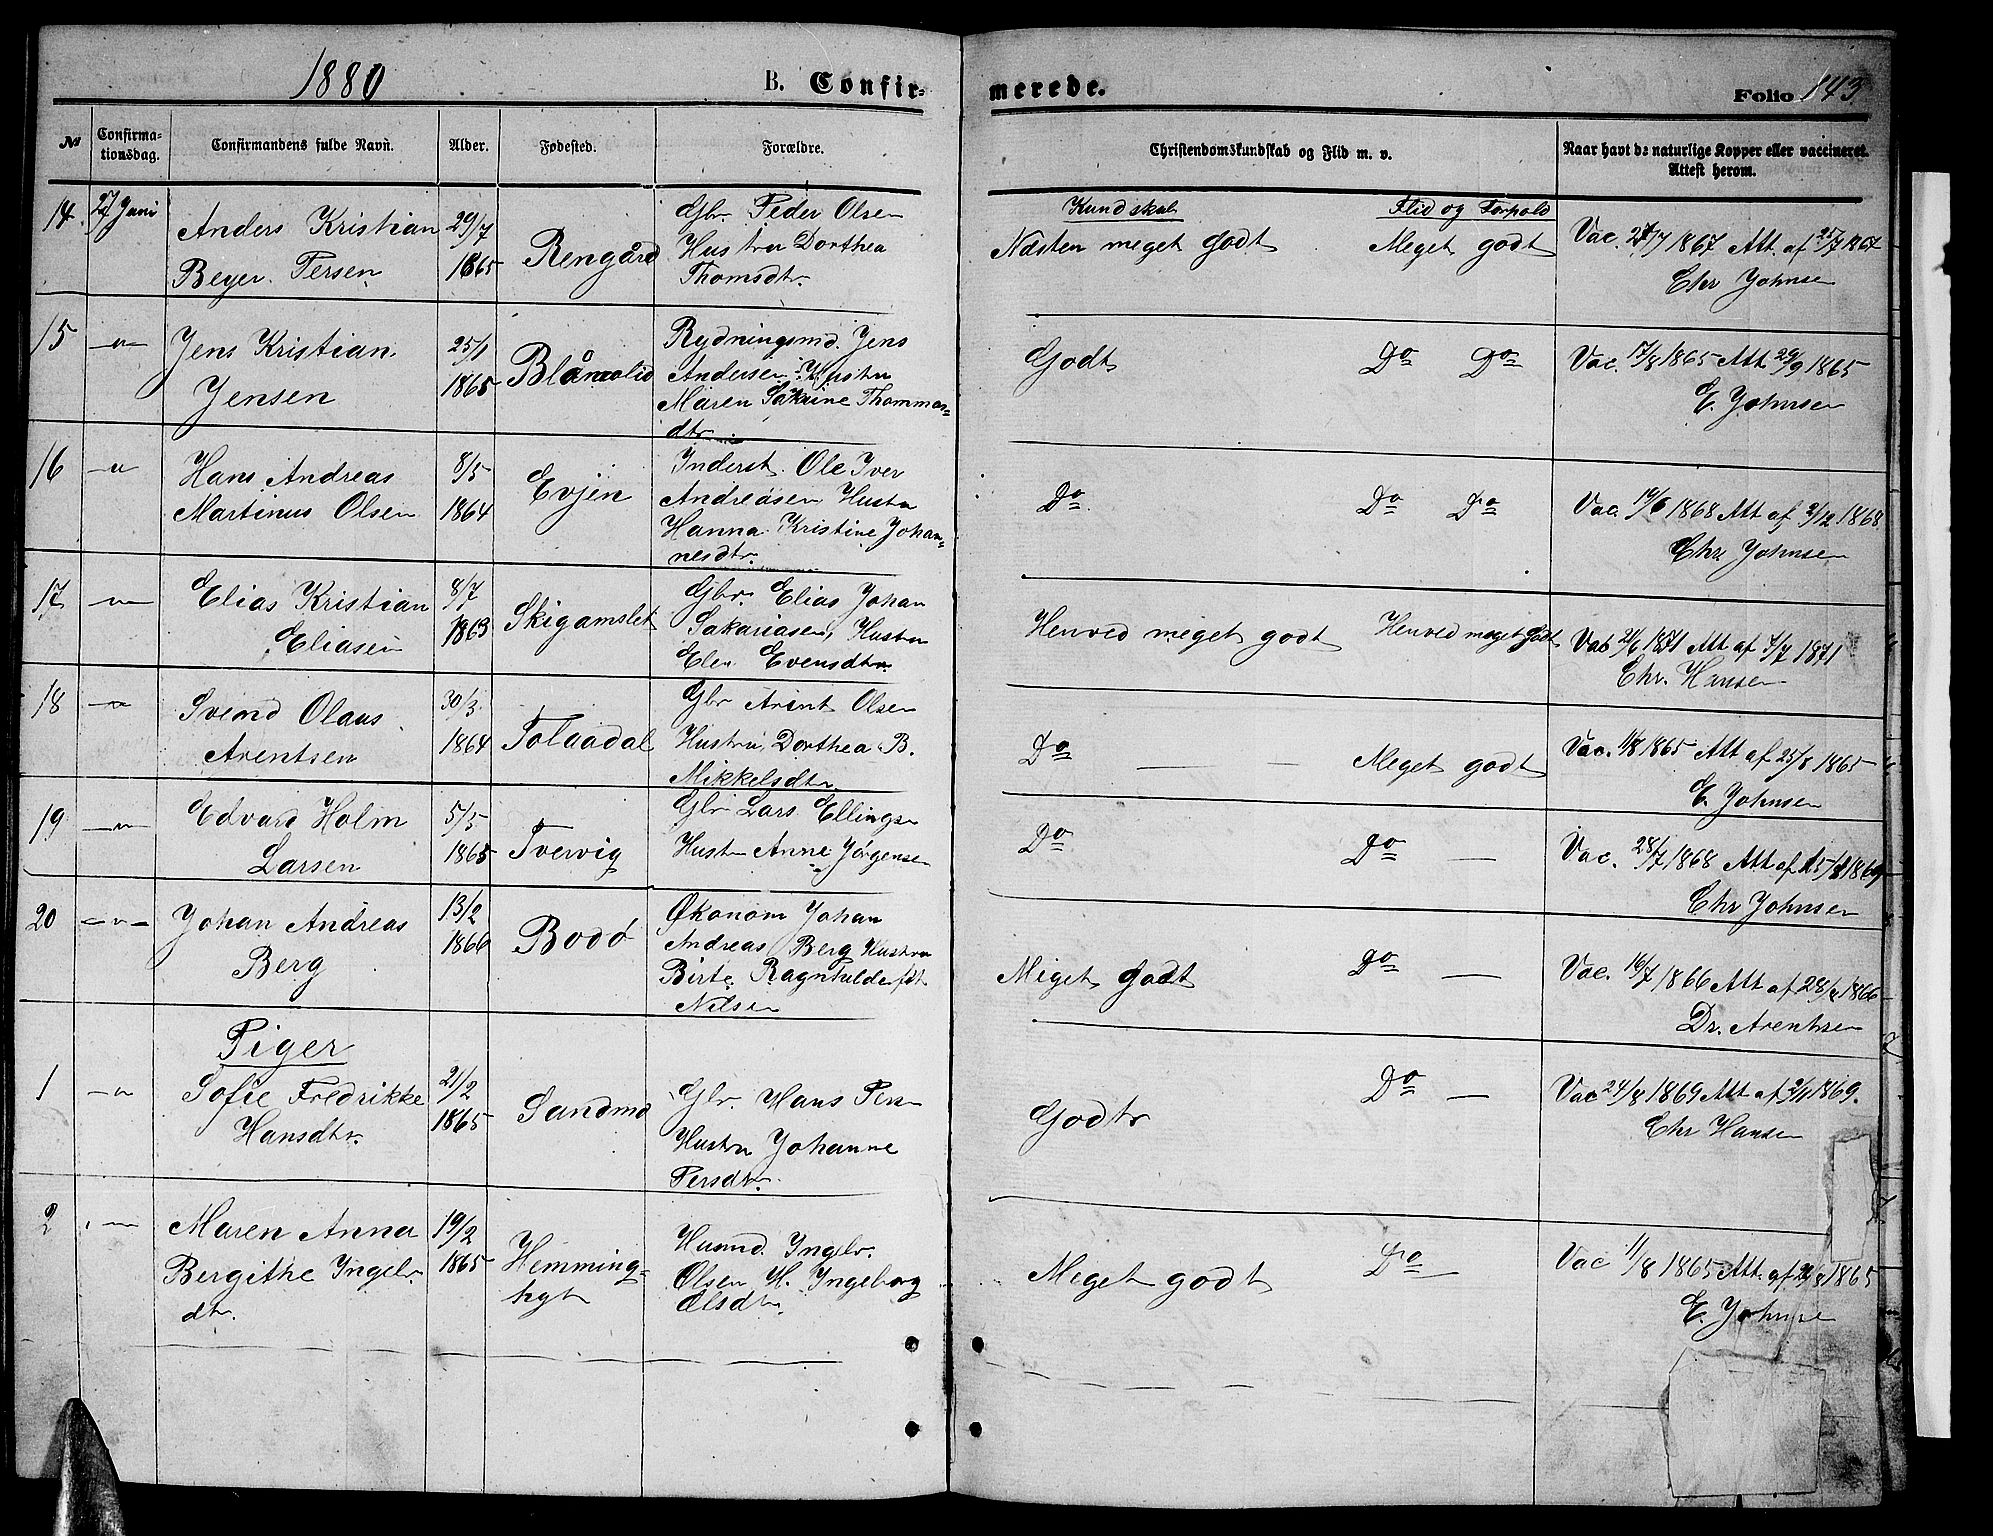 1880 B. Confirmerede. Folio 143
№ Confirmationsdag. Confirmandens fulde Navn. Alder. Fødested. Forældre. Christendomskundskab og Flid m. v. Naar havt de naturlige Kopper eller vaccineret. Attest herom.
Kundskab Flid og Forhold
14. 27 Juni Anders Kristian Beyer Persen 29/7 1865 Rengård Gbr. Peder Olsen Hustru Dorthea Thomsdtr. Næsten meget godt Meget godt Vac. 27/7 1867 Att. af 25/7 1867 Chr Johnsen
15 -"- Jens Kristian Jensen 25/1 1865 Rydningsmd. Jens Andersen Hustru Maren Sakrine Thommasdtr. Godt Do Do Vac. 17/8 1865 Att 29/9 1865 E. Johnsen
16 -"- Hans Andreas Martinus Olsen 8/5 1864 Evjen Inderst. Ole Iver Andreasen Hustru Hanna Kristine Johannesdtr. Do. Do Do Vac. 19/6 1868 Att af 2/12 1868 Chr Johnsen
17 -"- Elias Kristian Eliasen 8/7 1863 Skigamslet Gbr. Elias Johan Sakariasen, Hustru Elen Evensdtr. Henved meget godt Henved meget godt Vac 21/6 1871 Att af 7/7 1871 Chr. Hansen
18 -"- Svend Olaus Arentsen 30/3 1864 Gbr Arent Olsen Hustru Dorthea B. Mikkelsdtr. Do — — Meget godt Vac. 11/8 1865 Att af 25/8 1865 E. Johnsen
19 -"- Edvard Holm Larsen 5/5 1865 Tvervig Gbr Lars Ellingsen Hustru Anne Jørgensen Do Do — Vac. 28/7 1868 Att af 15/8 1869 Chr Johnsen
20 -"- Johan Andreas Berg 13/2 1866 Bodø Økonom Johan Andreas Berg Hustru Birte Ragnhilde fdt Nilsen Meget godt Do — Vac. 16/7 1866 Att af 28/8 1866 Dr. Arentsen
Piger
1 -"- Sofie Fredrikke Hansdtr. 21/2 1865 Sandmo Gbr. Hans Persen Hustru Johanne Persdtr. Godt Do — Vac 24/8 1869 Att af 2/11 1869. Chr Hansen
2 -"- Maren Anna Bergithe Ingebr.dtr. 19/2 1865 Husmd. Ingebr. Olsen H. Ingeborg Olsdtr. Meget godt Do — Vac 11/8 1865 Att. af 1865 E. Johnsen